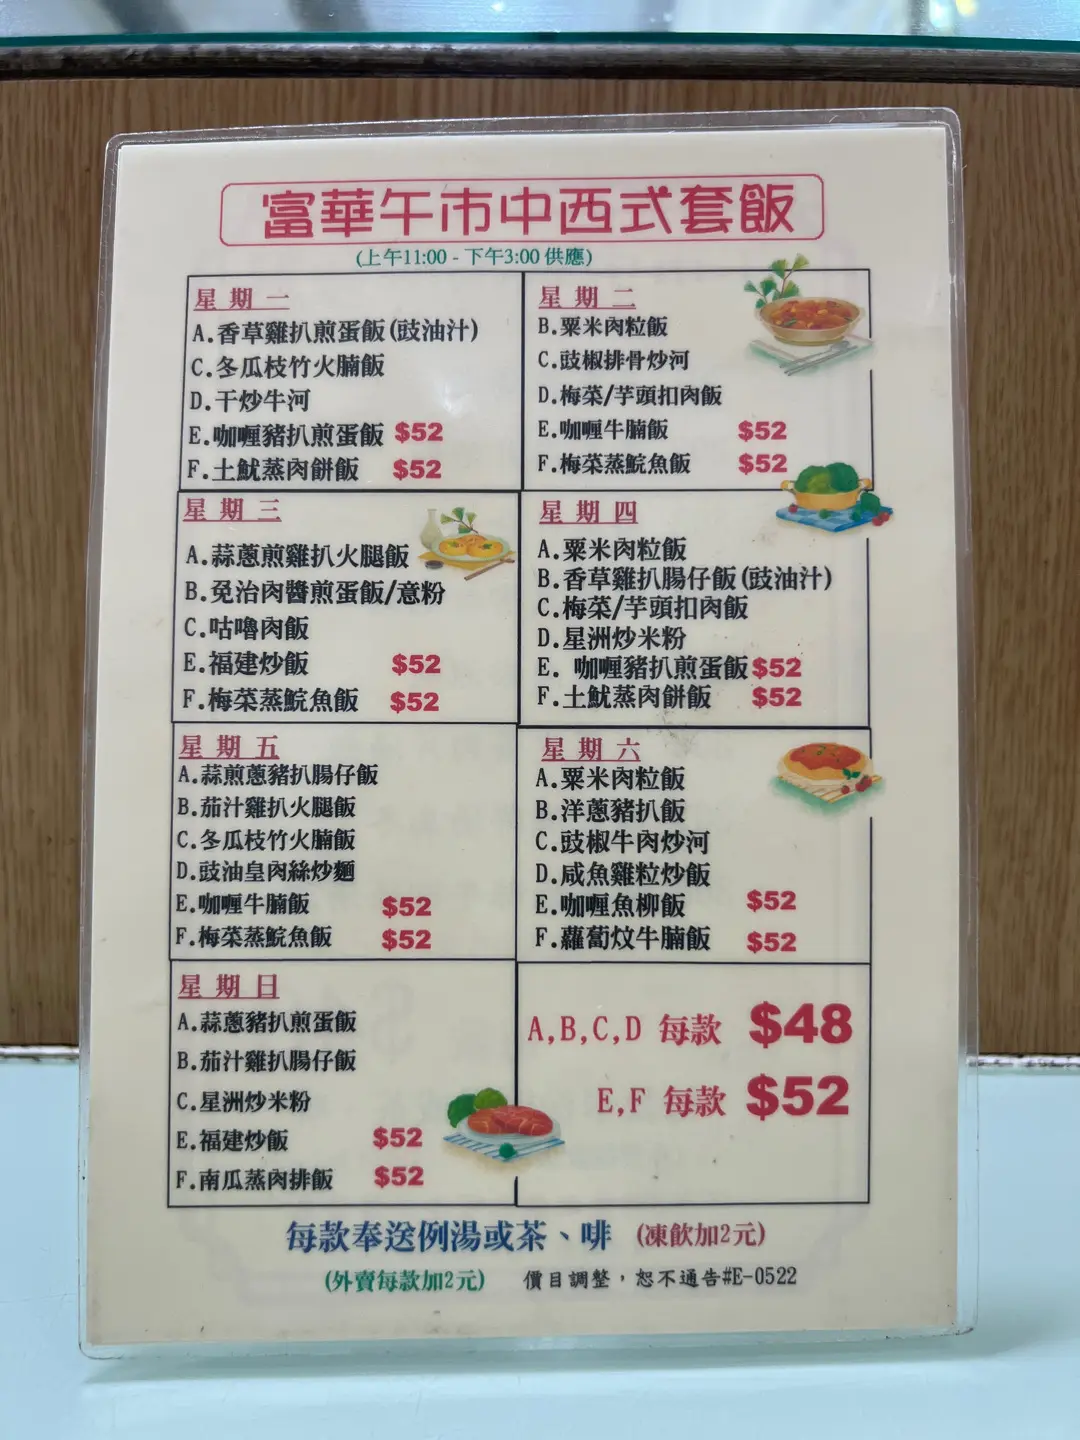 富華午市中西式套飯
(上午11:00 - 下午3:00 供應)
星 期 一
A.香草雞扒煎蛋飯(豉油汁)
C.冬瓜枝竹火腩飯
D.干炒牛河
E.咖喱豬扒煎蛋飯 $52
F.土魷蒸肉餅飯 $52
星 期 二
B.粟米肉粒飯
C.豉椒排骨炒河
D.梅菜/芋頭扣肉飯
E.咖喱牛腩飯 $52
F.梅菜蒸鯇魚飯 $52
星 期 三
A.蒜蔥煎雞扒火腿飯
B.免治肉醬煎蛋飯/意粉
C.咕嚕肉飯
E.福建炒飯 $52
F.梅菜蒸鯇魚飯 $52
星 期 四
A.粟米肉粒飯
B.香草雞扒腸仔飯(豉油汁)
C.梅菜/芋頭扣肉飯
D.星洲炒米粉
E. 咖喱豬扒煎蛋飯 $52
F.土魷蒸肉餅飯 $52
星 期 五
A.蒜煎蔥豬扒腸仔飯
B.茄汁雞扒火腿飯
C.冬瓜枝竹火腩飯
D.豉油皇肉絲炒麵
E.咖喱牛腩飯 $52
F.梅菜蒸鯇魚飯 $52
星 期 六
A.粟米肉粒飯
B.洋蔥豬扒飯
C.豉椒牛肉炒河
D.咸魚雞粒炒飯
E.咖喱魚柳飯 $52
F.蘿蔔炆牛腩飯 $52
星 期 日
A.蒜蔥豬扒煎蛋飯
B.茄汁雞扒腸仔飯
C.星洲炒米粉
E.福建炒飯 $52
F.南瓜蒸肉排飯 $52
A,B,C,D 每款 $48
E,F 每款 $52
每款奉送例湯或茶、啡 (凍飲加2元)
(外賣每款加2元) 價目調整，恕不通告#E-0522